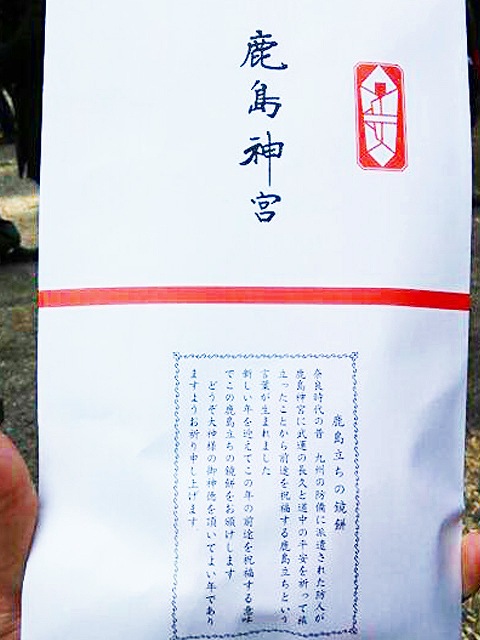 鹿島神宮
鹿島立ちの鏡餅
奈良時代の昔　九州の防備に派遣された防人が
鹿島神宮に武運の長久と道中の平安を祈って旅
立ったことから前途を祝福する鹿島立ちという
言葉が生まれました
新しい年を迎えてこの年の前途を祝福する意味
でこの鹿島立ちの鏡餅をお頒けします
どうぞ大神様の御神徳を頂いてよい年であり
ますようお祈り申し上げます